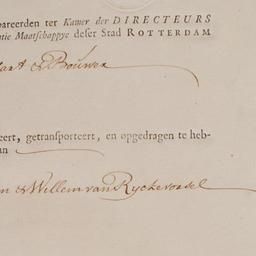 pareerden ter Kamer der DIRECTEURS
ntie Maatschappye deser Stad ROTTERDAM
Bouwen
eert, getransporteert, en opgedragen te heb-
an
en & Willem van Ryckevorsel